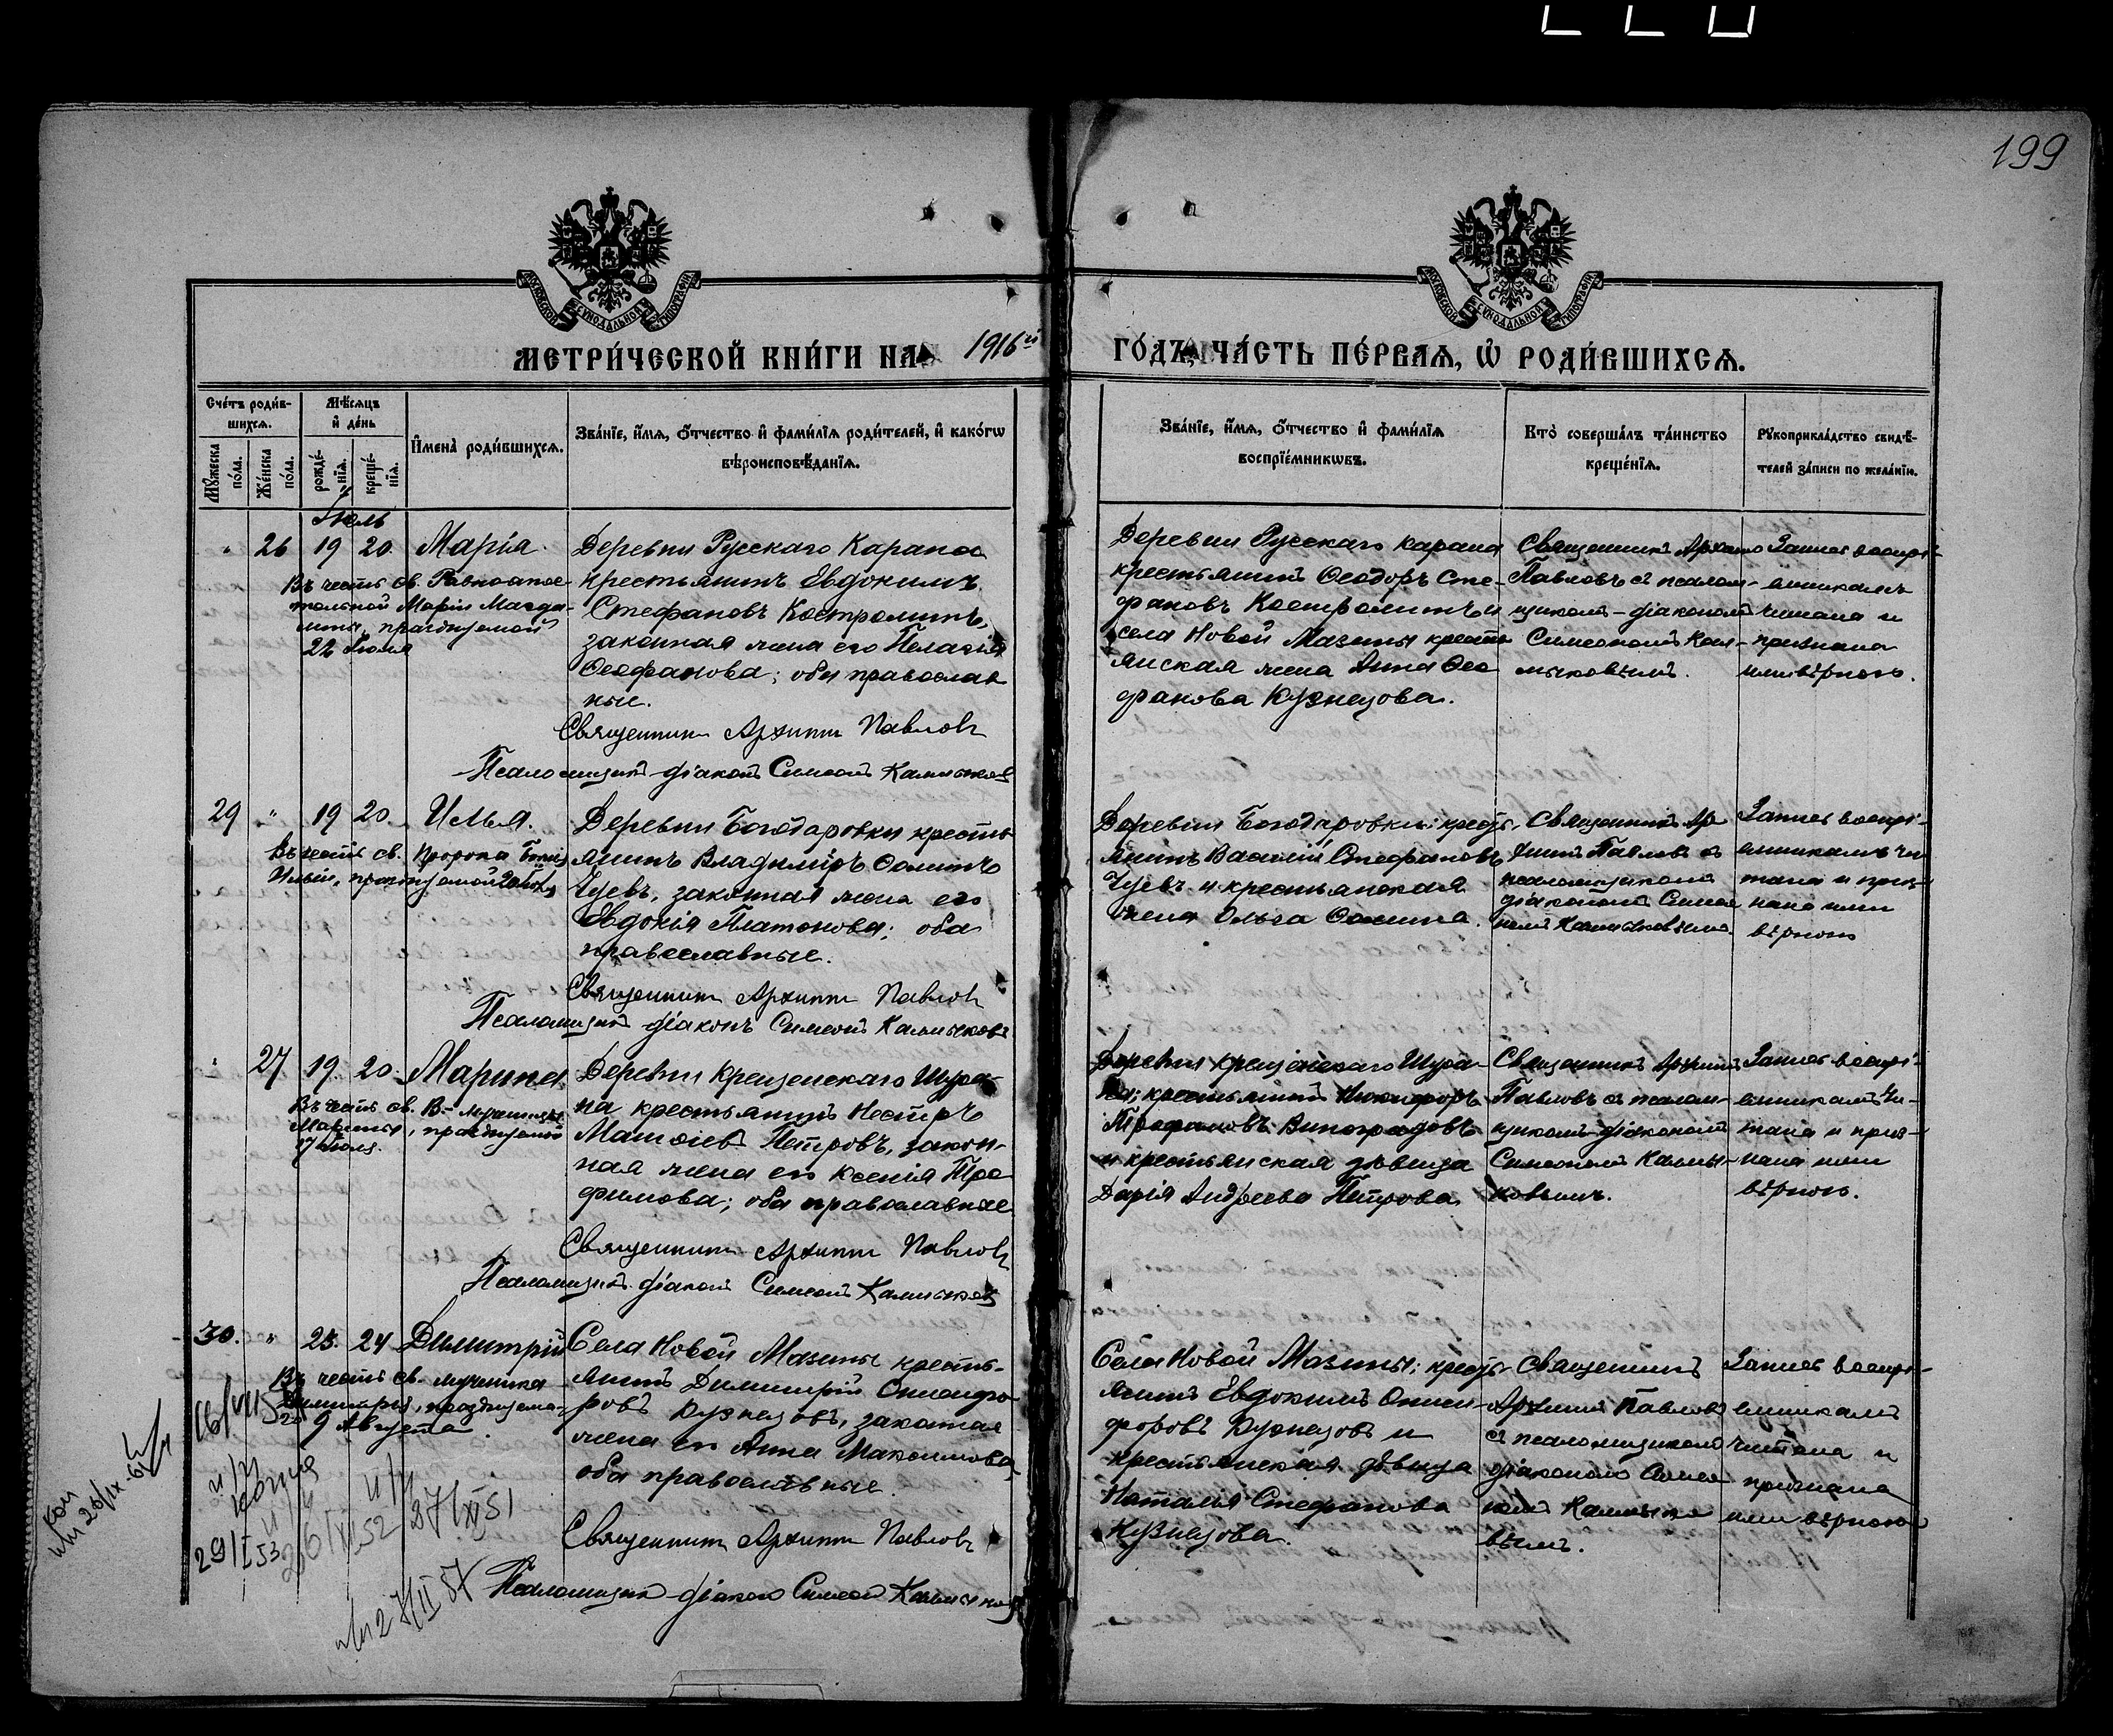 199
МОСКОВСКОЙ СѴНОДАЛЬНОЙ ТИПОГРАФІИ
МОСКОВСКОЙ СѴНОДАЛЬНОЙ ТИПОГРАФІИ
МЕТРИ́ЧЕСКОЙ КНИ́ГИ НА 1916й ГО́ДЪ, ЧА́СТЬ ПЕ́РВАѦ, Ѡ҆ РОДИ́ВШИХСѦ.
Сче́тъ роди́в-
шихсѧ.
Мꙋ́жеска по́ла.
Же́нска по́ла.
Мѣ́сѧцъ
и҆ де́нь
рожде́-
нїѧ.
креще́-
нїѧ.
И҆мена̀ роди́вшихсѧ.
Зва́нїе, и҆́мѧ, ѻ҆́тчество и҆ фами́лїѧ роди́телей, и҆ како́гѡ
вѣроисповѣ́данїѧ.
Зва́нїе, и҆́мѧ, ѻ҆́тчество и҆ фами́лїѧ
воспрїе́мникѡвъ.
Кто̀ соверша́лъ та́инство
креще́нїѧ.
Рꙋкоприкла́дство свидѣ́-
телей за́писи по жела́нїю.
Іюль
" 26 19 20. Марія.
Въ честь св. Равноапос-
тольной Маріи Магда-
лины, празднуемой
22 Іюля
Деревни Русскаго Карана
крестьянинъ Евдокимъ
Стефановъ Костроминъ,
законная жена его Пелагія
Ѳеофанова; оба православ
ные.
Священникъ Архиппъ Павловъ
Псаломщикъ-діаконъ Симеонъ Калмыковъ
Деревни Русскаго Карана
крестьянинъ Ѳеодоръ Сте-
фановъ Костроминъ и
села Новой Мазины кресть
янская жена Анна Ѳео
фанова Кузнецова.
Священникъ Архипъ
Павловъ съ псалом-
щикомъ-діакономъ
Симеономъ Кал-
мыковымъ.
Запись воспрі-
емникамъ
читана и
признана
ими вѣрною.
29 " 19 20. Илья.
Въ честь св. Пророка Божія
Иліи, празднуемой 20 Іюля
Деревни Богодаровки кресть
янинъ Владиміръ Ѳоминъ
Чуевъ, законная жена его
Евдокія Платонова; оба
православные.
Священникъ Архиппъ Павловъ
Псаломщикъ діаконъ Симеонъ Калмыковъ
Деревни Богодаровки: кресть
янинъ Василій Стефановъ
Чуевъ и крестьянская
жена Ольга Ѳомина.
Священникъ Ар
хипъ Павловъ съ
псаломщикомъ
діакономъ Симео
номъ Калмыковымъ
Запись воспрі-
емникамъ чи
тана и приз-
нана ими
вѣрною
" 27 19 20. Марина
Въ честь св. В-мученицы
Марины, празднуемой
17 Іюля.
Деревни Крещенскаго Шура-
на крестьянинъ Несторъ
Матѳіевъ Петровъ, закон-
ная жена его Ксенія Тро
фимова; оба православные
Священникъ Архиппъ Павловъ
Псаломщикъ діаконъ Симеонъ Калмыковъ
Деревни Крещенскаго Шура-
на; крестьянинъ Никифоръ
Трофимовъ Виноградовъ
и крестьянская дѣвица
Дарія Андреева Петрова
Священникъ Архипъ
Павловъ съ псалом-
щикомъ-діакономъ
Симеономъ Калмы-
ковымъ.
Запись воспрі-
емникамъ чи-
тана и приз-
нана ими
вѣрною.
30. " 23. 24 Димитрій
Въ честь св. мученика
Димитрія, празднуема-
9 Августа.
Села Новой Мазины кресть-
янинъ Димитрій
Кузнецовъ, законная
жена его Анна Максимова
оба православные.
Священникъ Архиппъ Павловъ
Псаломщикъ діаконъ Симеонъ Калмыковъ
Села Новой Мазины; кресть
янинъ Евдокимъ Ониси-
форовъ Кузнецовъ и
крестьянская дѣвица
Наталья Стефанова
Кузнецова.
Священникъ
Архипъ Павловъ
съ псаломщикомъ
діакономъ Симео
номъ Калмыко
вымъ.
Запись воспрі-
емникамъ
читана и
признана
ими вѣрною
копия
29/I 53
26/XI 52
27/XI 51